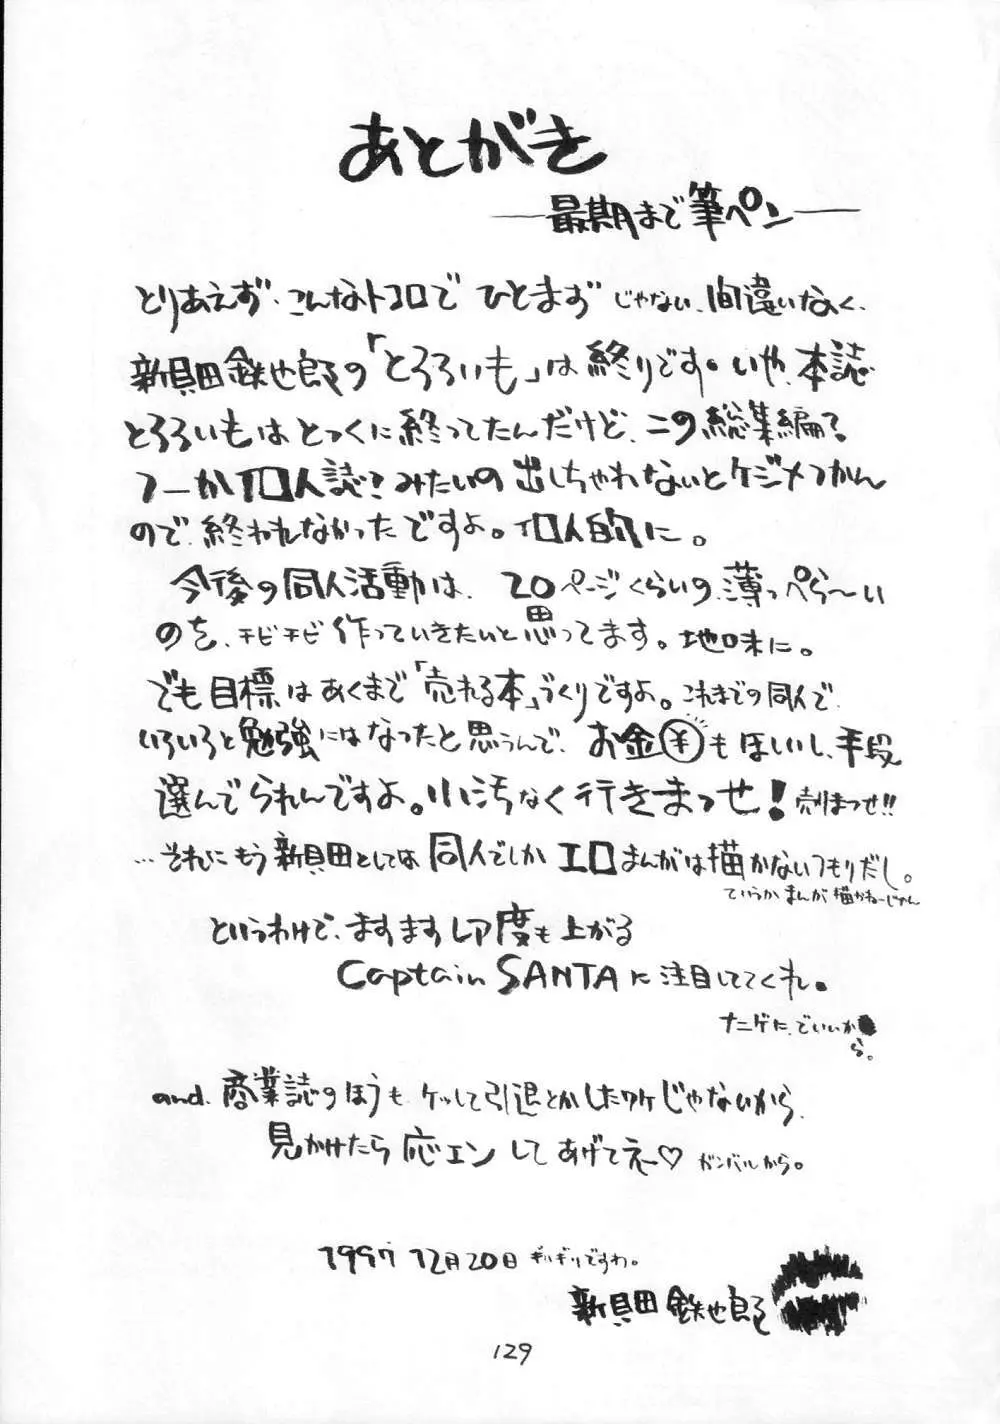 あとがき
──最期まで筆ペン──
とりあえず、こんなトコロでひとまずじゃない、間違いなく、
新貝田鉄也郎の「とろろいも」は終りです。いや、本誌
とろろいもはとっくに終ってたんだけど、この総集編?
つーか個人誌?みたいの出しちゃわないとケジメつかん
ので、終われなかったですよ。個人的に。
今後の同人活動は、20ページくらいの、薄っぺら〜い
のを、チビチビ作っていきたいと思ってます。地味に。
でも目標はあくまで「売れる本」づくりですよ。これまでの同人で、
いろいろと勉強にはなったと思うんで、お金¥もほしいし、手段
選んでられんですよ。小汚なく行きまっせ!売りまっせ!!
…それにもう新貝田としては同人でしかエロまんがは描かないつもりだし。
ていうかまんが描かねーじゃん
というわけで、ますますレア度も上がる
Captain SANTAに注目しててくれ。
ナニゲに、でいいか
ら。
and、商業誌のほうも、ケッして引退とかしたワケじゃないから、
見かけたら応エンしてあげてえー♡ ガンバルから。
1997 12月20日 ギリギリですわ。
新貝田鉄也郎
129